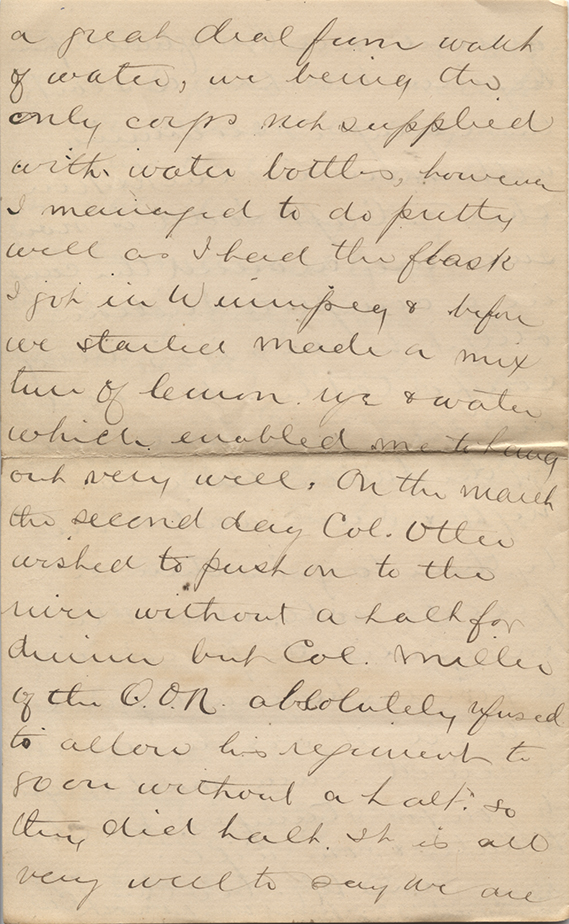 a great deal from want
of water, we being the
only corps not supplied
with water bottles, however
I managed to do pretty
well as I had the flask
I got in Winnipeg & before
we started made a mix
ture of lemon & water
which enabled me to hang
out very well. On the march
the second day Col. Otter
wished to push on to the
river without a halt for
dinner but Col. Miller
of the Q.O.R. absolutely refused
to allow his regiment to
go on without a halt. so
they did halt. It is all
very well to say we are